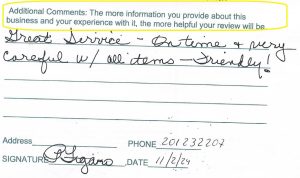 Additional Comments: The more information you provide about this
business and your experience with it, the more helpful your review will be.
Great Service - On time & very
careful w/ all items - Friendly!
Address PHONE 201232207
SIGNATURE DATE 11/2/24